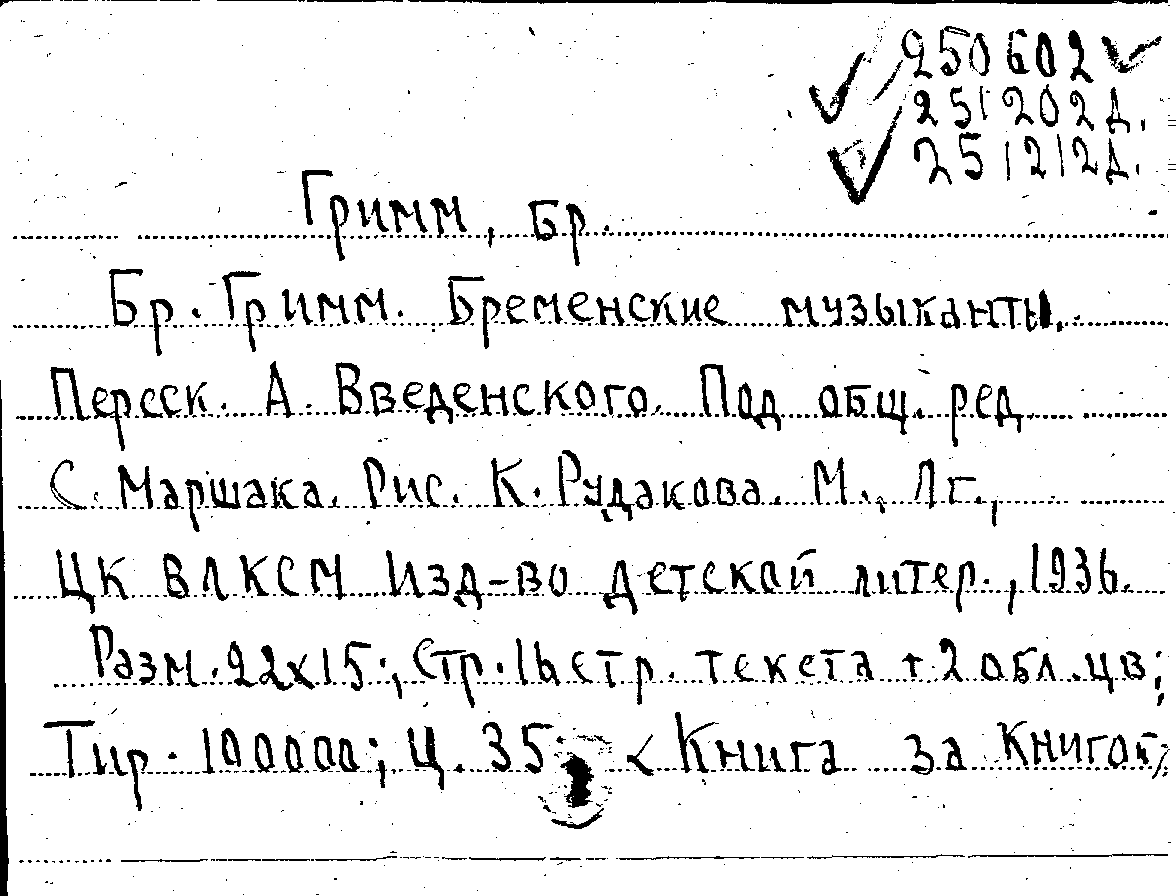 250602
251202д.
251212д.
Гримм, бр.
Бр. Гримм. Бременские музыканты.
Пересk. А. Введенского. Под общ. ред.
С. Маршака. Рис. К. Рудакова. М., Лг.,
ЦК ВЛКСМ Изд-во детской литер., 1936.
Разм. 22x15; Стр. 16 стр. текста + 2 обл. цв;
Тир. 100000; Ц. 35; < Книга за книгой